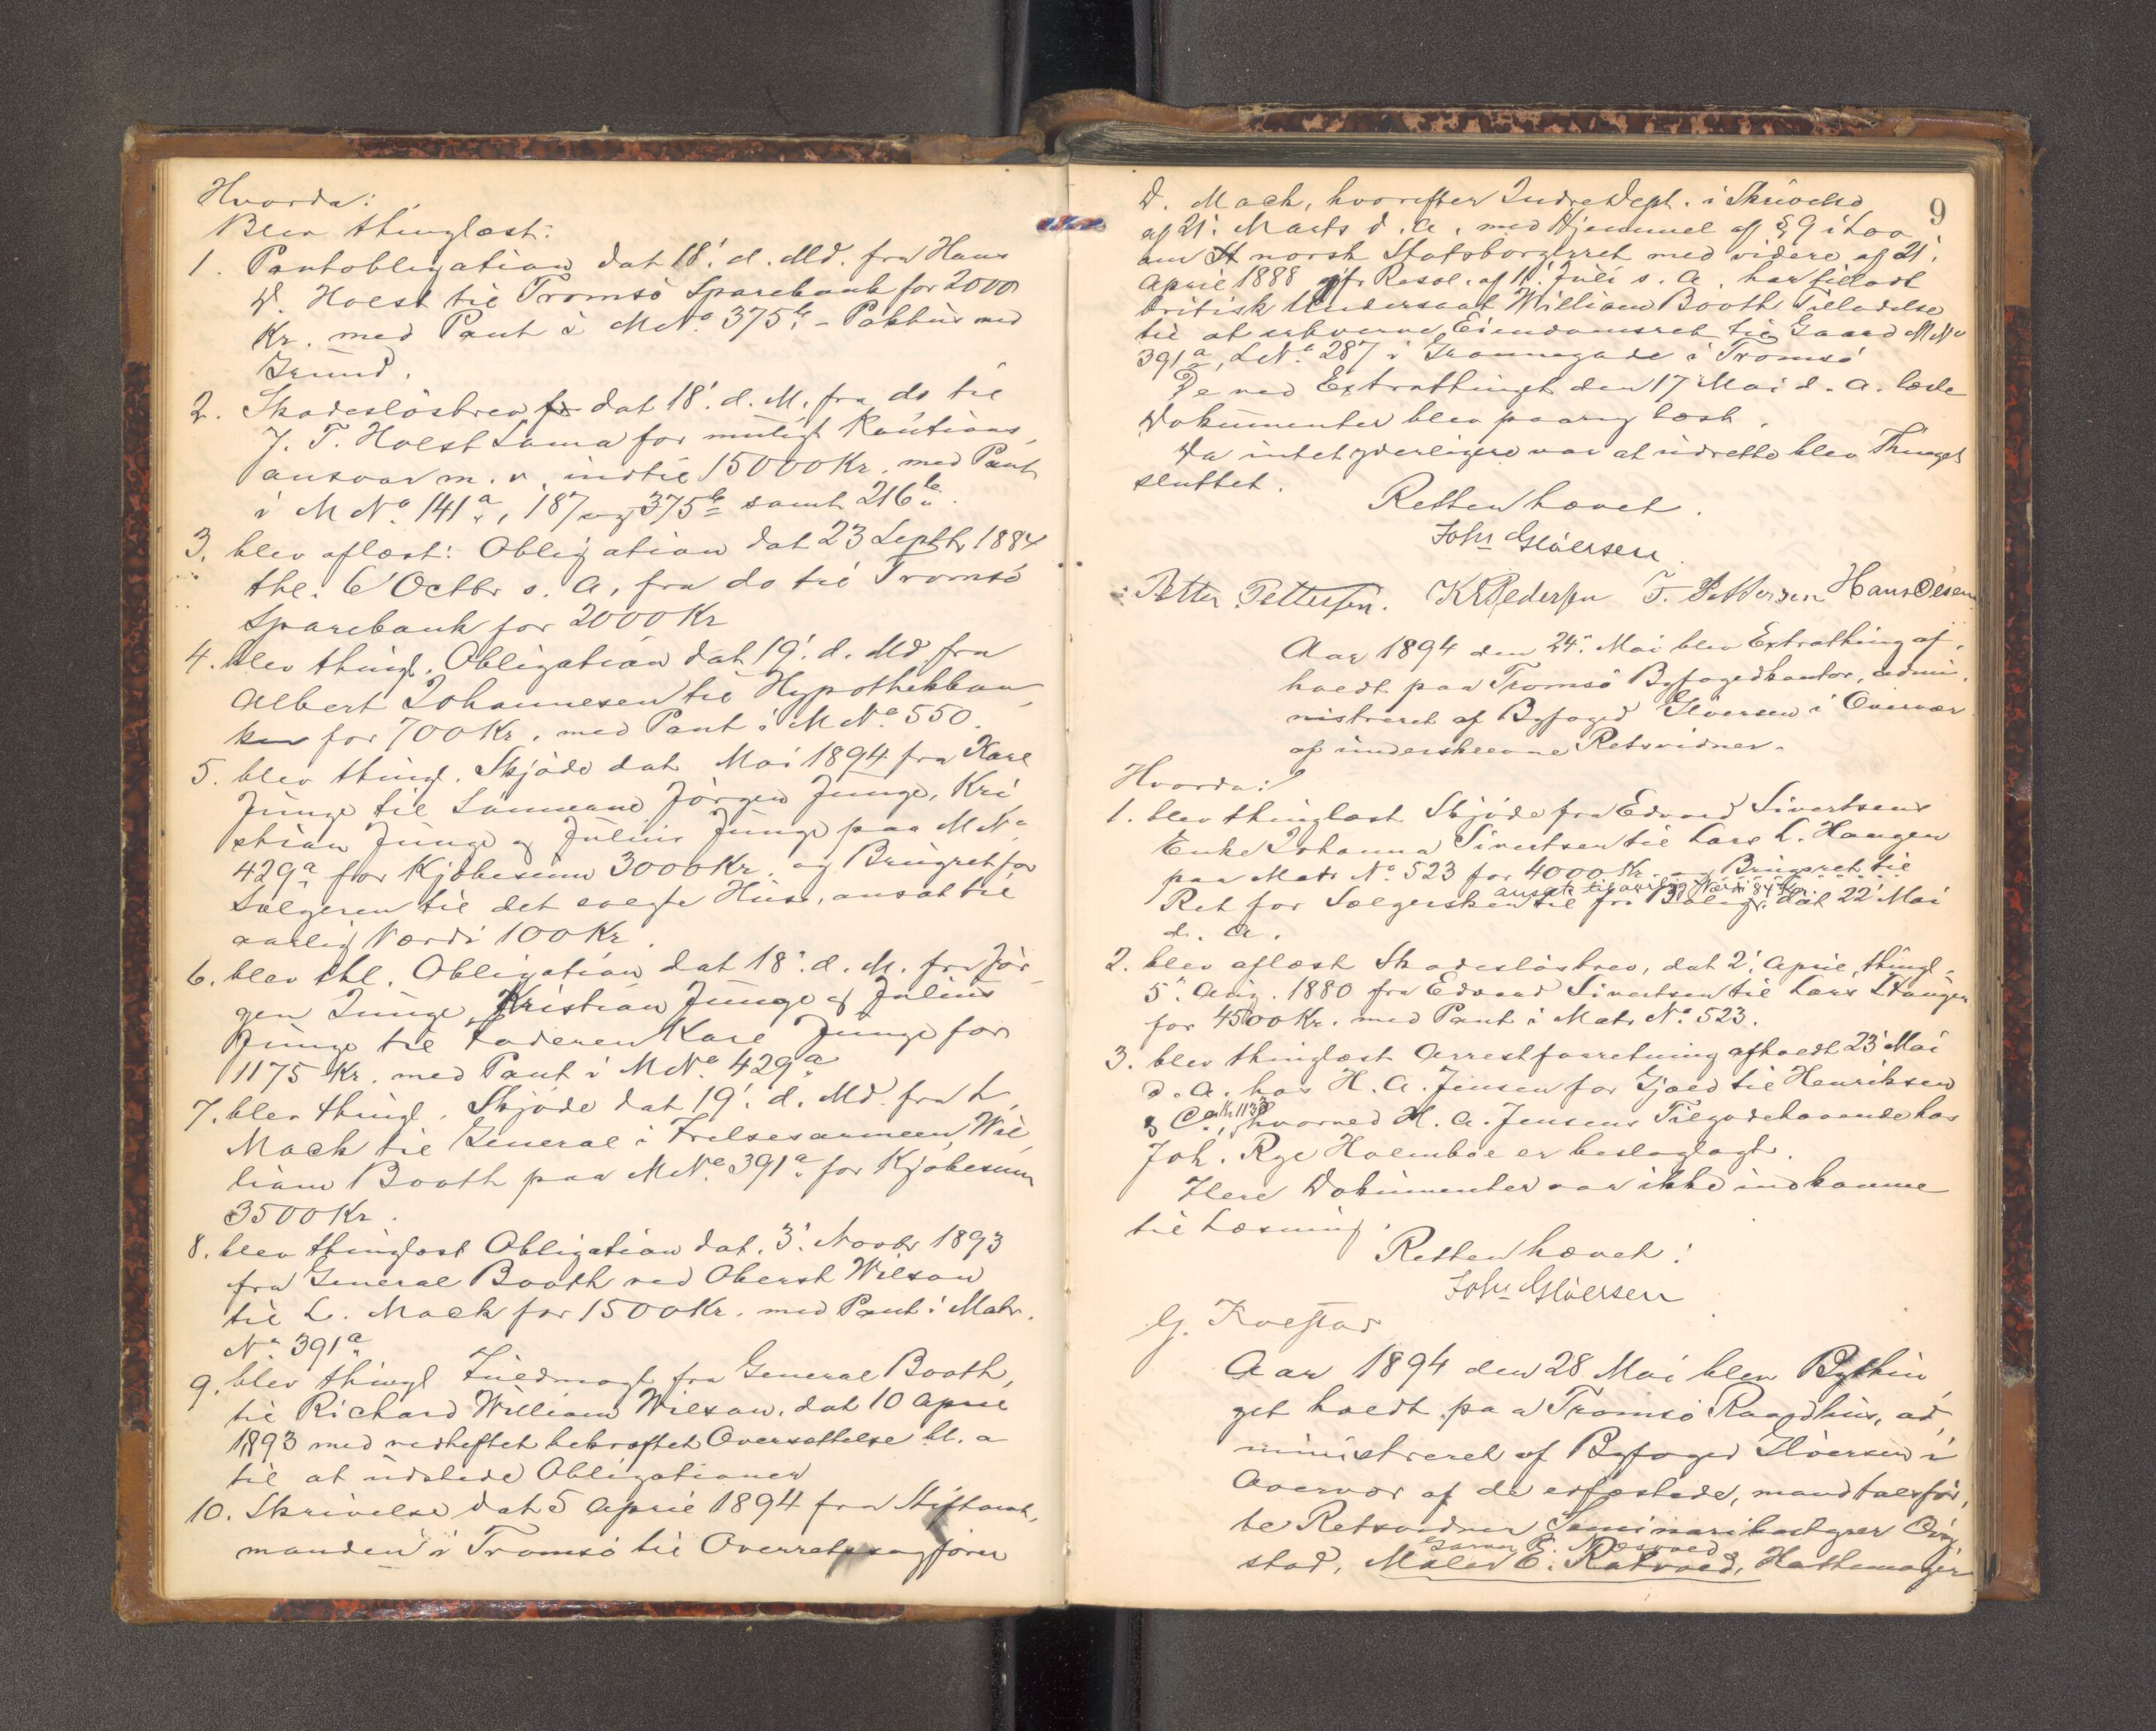 Hvorda:
Blev thinglæst:
1. Pantobligation dat 18' d. Md. fra Hans
D. Holst til Tromsö Sparebank for 2000
Kr. med Pant i M No 375b - Pakhus med
Grund.
2. Skadeslösbrev dat 18'. d. M. fra do til
J. T. Holst Lama for muligt Kautions
ansvar m. v. indtil 15000 Kr. med Pant
i M No 141a, 187 og 375b samt 216b.
3. blev aflæst: Obligation dat 23 Septbr 1884
thl. 6' Octbr s. A. fra do til Tromsö
Sparebank for 2000 Kr
4. blev thingl. Obligation dat 19'. d. Md fra
Albert Johannesen til Hypothekban
ken for 700 Kr. med Pant i M No 550.
5. blev thingl. Skjöde dat Mai 1894 fra Karl
Junge til Sönnerne Jörgen Junge, Kri
stian Junge og Julius Junge paa M No
429a for Kjöbesum 3000 Kr. og Brugret for
Sælgeren til det solgte Hus, ansat til
aarlig Værdi 100 Kr.
6. blev thl. Obligation dat 18'. d. M. fra Jör-
gen Junge, Kristian Junge og Julius
Junge til Faderen Karl Junge for
1175 Kr. med Pant i M No 429a
7. blev thingl. Skjöde dat 19'. d. Md. fra L.
Mack til General i Frelsesarmeen, Wil
liam Booth paa M No 391a for Kjöbesum
3500 Kr.
8. blev thinglæst Obligation dat. 3'. Novbr 1893
fra General Booth ved Oberst Wilson
til L. Mack for 1500 Kr. med Pant i Matr.
No 391a
9. blev thingl Fuldmagt fra General Booth,
til Richard William Wilson, dat 10 April
1893 med vedheftet bekræftet Oversættelse bl. a
til at udstede Obligationer
10. Skrivelse dat 5 April 1894 fra Stiftamt,
manden i Tromsö til Overretssagförer
9
D. Mack, hvorefter Indredept. i Skrivelse
af 21'. Marts d. A. med Hjemmel af § 9 i Lov
om norsk Statsborgerret med videre af 21'.
April 1888 jfr Resol. af 11' Juli s. A. har tilladt
britisk Undersaat William Booth Tilladelse
til at erhverve Eiendomsret til Gaard M No
391a, L No 287 i Grönnegade i Tromsö
De ved Extrathinget den 17 Mai d. A. læste
Dokumenter blev paany læst.
Da intet yderligere var at udrette blev Thinget
sluttet.
Retten hævet.
Johs Gløersen
Petter Pettersen. K R Pedersen T. Pettersen Hans Olsen
Aar 1894 den 24' Mai blev Extrathing af,
holdt paa Tromsö Byfogedkontor, admi,
nistreret af Byfoged Gløersen i Overvær
af underskrevne Retsvidner.
Hvorda:
1. blev thinglæst Skjöde fra Edvard Sivertsens
Enke Johanna Sivertsen til Lars L. Haugen
paa Matr No 523 for 4000 Kr. og Brugsret til
ansat til aarlig Værdi 84 Kr.
Ret for Sælgersken til fri Bolig. dat 22' Mai
d. A.
2. blev aflæst Skadeslösbrev, dat 2'. April, thingl-
5'. Aug. 1880 fra Edvard Sivertsen til Lars L Haugen
for 4500 Kr. med Pant i Matr No 523.
3. blev thinglæst Arrestforretning afholdt 23' Mai
d. A. hos H. A. Jensen for Gjæld til Henriksen
& Co, hvorved H. A. Jensens Tilgodehavende hos
Joh. Rye Holmboe er beslaglagt.
Flere Dokumenter var ikke indkomne
til Læsning.
Retten hævet:
Johs Gløersen
G. Kvestad
Aar 1894 den 28 Mai blev Bythin,
get holdt paa Tromsö Raadhus, ad,
ministreret af Byfoged Gløersen i
Overvær af de edfæstede, mandtalsför,
te Retsvidner Seminaribestyrer Qvig
stad, Maler E. Ratvold, Hattemager